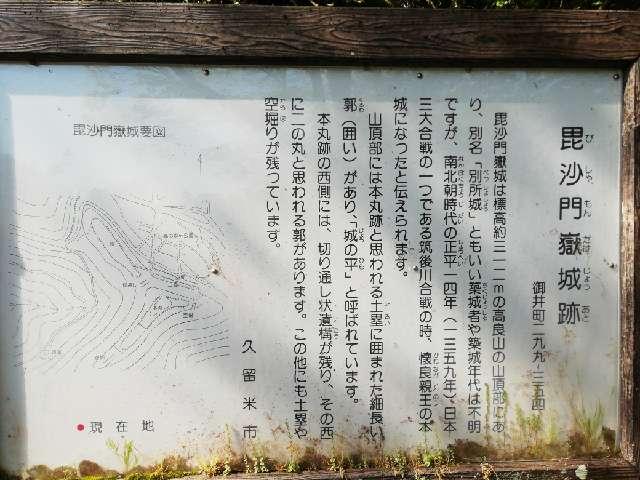 毘沙門嶽城跡
びしゃもんだけじょうあと
御井町二九九-三五四
毘沙門嶽城は標高約三一二mの高良山の山頂部にあ
り、別名「別所城」ともいい築城者や築城年代は不明
ですが、南北朝時代の正平一四年（一三五九年）、日本
三大合戦の一つである筑後川合戦の時、懐良親王の本
城になったと伝えられます。
山頂部には本丸跡と思われる土塁に囲まれた細長い
郭（囲い）があり、「城の平」と呼ばれています。
本丸跡の西側には、切り通し状遺構が残り、その西
に二の丸と思われる郭があります。この他にも土塁や
空堀りが残っています。
久留米市
毘沙門嶽城要図
現在地